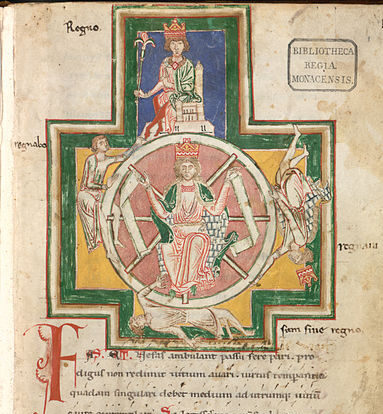 Regno.
BIBLIOTHECA
REGIA
MONACENSIS.
regnabo
regnaui
sum sine regno.
FAS ET Nefas ambulant passu fere pari. pro
digus non redimit uitium auari. uirtus temperantia
quadam singulari debet medium ad utrumque uitiũ